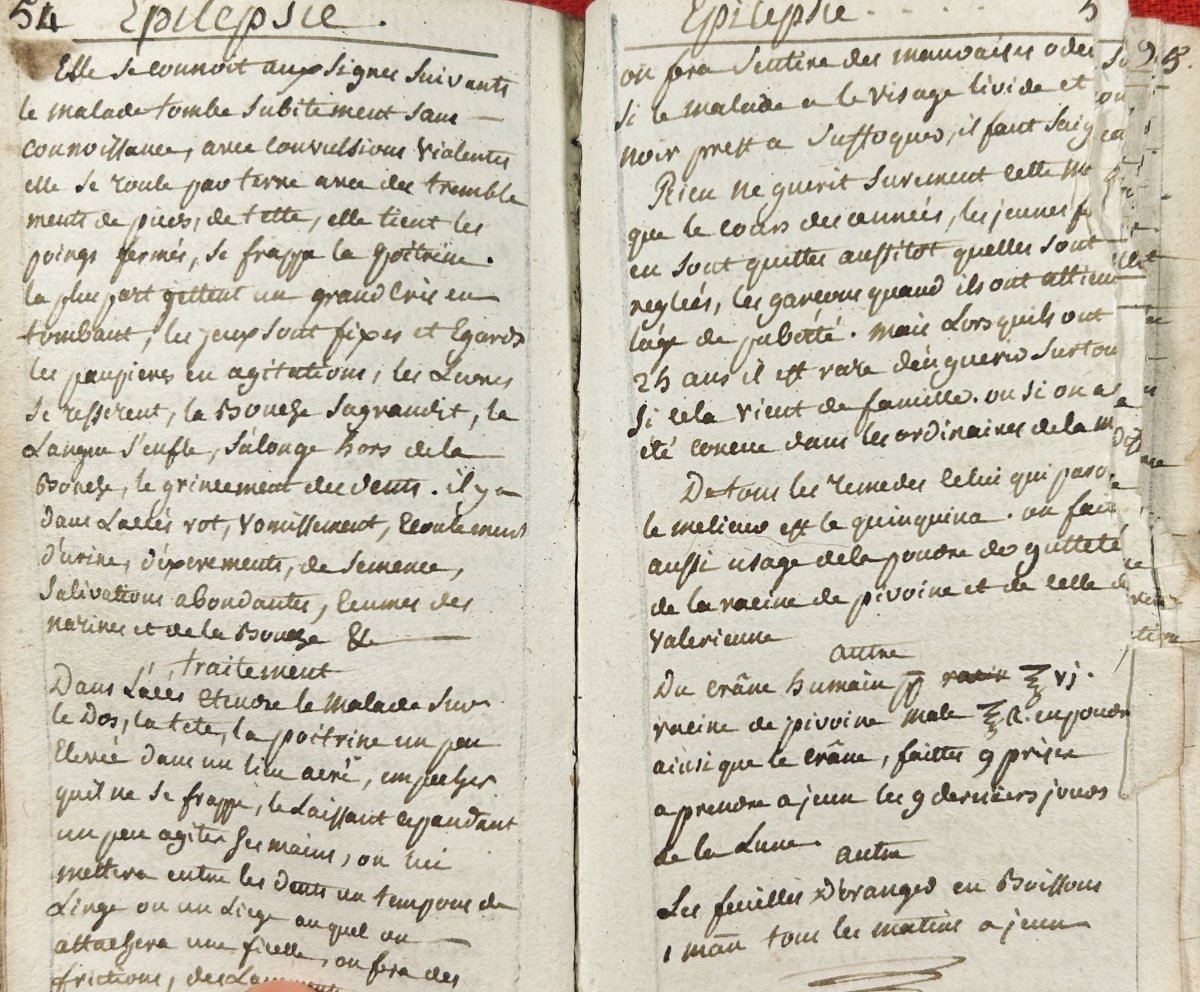 54 Epilepsie.
Elle se connoit aux signes suivants
le malade tombe subitement sans
connoissance, avec convulsions violentes
elle se roule par terre avec des tremble
ments de pieds, de tette, elle tient les
poings fermés, se frappe la poitrine.
la plus part gettent un grand Cris en
tombant, les yeux sont fixes et Egards
les paupieres en agitations, les Levres
se resserent, la Bouche sagrandit, la
Langue s'enfle, s'alonge hors de la
Bouche, le grincement des dents. il y a
dans L'accés rot, vomissement, Ecoulement
d'urine, d'éxcrements, de semence,
salivations abondantes, Ecumes des
narines et de la Bouche &c
traitement
Dans L'accés etendre le malade sur
le Dos, la tete, la poitrine un peu
Elevée dans un lieu aeré, empecher
quil ne se frappe, le Laissant cependant
un peu agiter ses mains, on lui
mettera entre les dents un tempons de
Linge ou un Liege auquel on
attachera une ficelle, on fera des
frictions, des
Epilepsie 5
on fera sentire des mauvaises odeu
si le malade a le visage livide et
noir prest a suffoquer, il faut saig
Rien ne guerit surement cette m
que le cours des années, les jeunes f
en sont quittes aussitot quelles sont
regleés, les garçons quand ils ont attein
l'âge de puberté. mais Lorsquils ont
25 ans il est rare d'en guerir surtou
si cela vient de famille. ou si on a
été concue dans les ordinaires de la m
De tous les remedes celui qui paro
le melieur est le quinquina. on fait
aussi usage de la poudre de gutteté
de la racine de pivoine et de celle d
valerienne
autre
Du crâne humain ℥ vj.
racine de pivoine male ℥ 2. en poudre
ainsi que le crâne, faittes 9 prises
a prendre a jeun les 9 derniers jours
de la Lune.
autre
Les feuilles D'oranger en Boissons
1 man tous les matins a jeun